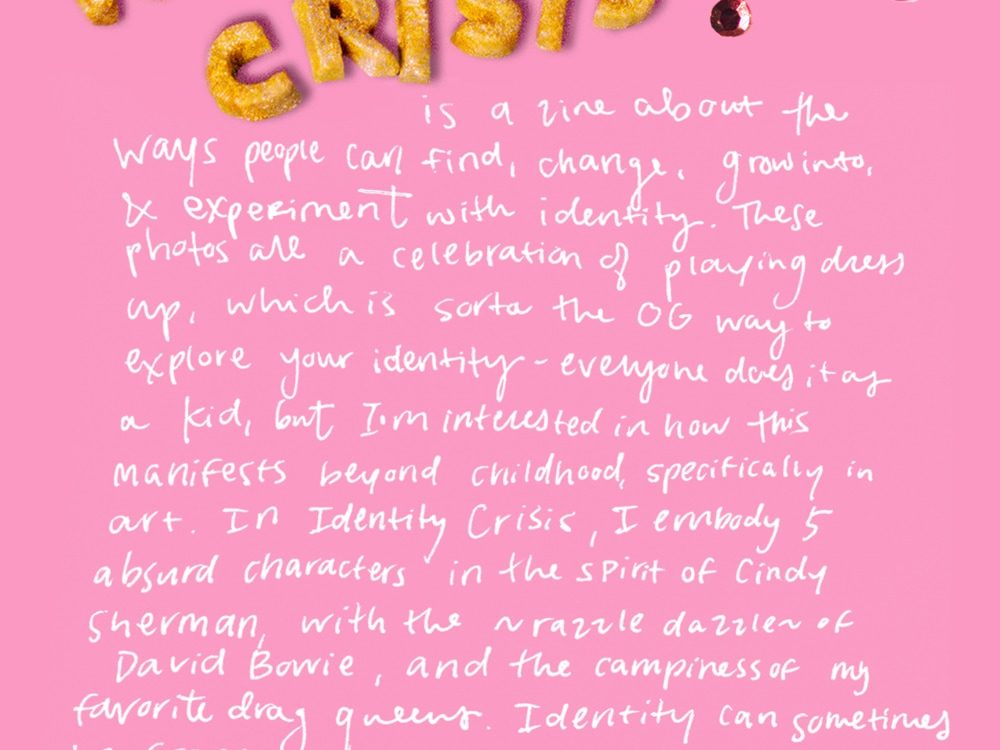 CRISIS
is a zine about the
ways people can find, change, grow into,
& experiment with identity. These
photos are a celebration of playing dress
up, which is sorta the OG way to
explore your identity - everyone does it as
a kid, but I'm interested in how this
manifests beyond childhood, specifically in
art. In Identity Crisis, I embody 5
absurd characters in the spirit of Cindy
Sherman, with the ~razzle dazzle~ of
David Bowie, and the campiness of my
favorite drag queens. Identity can sometimes